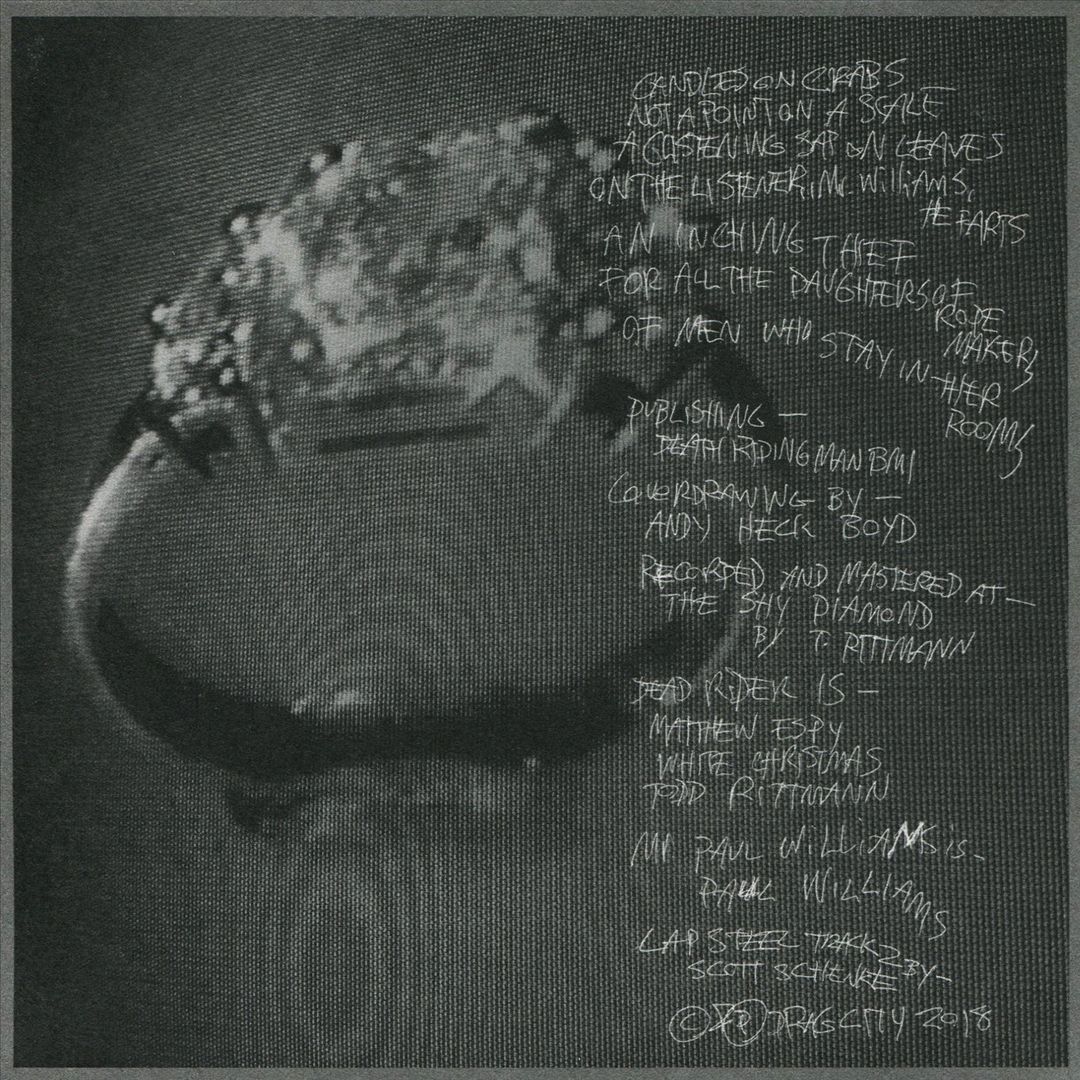 CANDLES ON CRABS
NOT A POINT ON A SCALE
A GLISTENING SAP ON LEAVES
ON THE LISTENER, Mr. WilliAMS,
HE FARTS
AN INCHING THIEF
FOR ALL THE DAUGHTERS OF
ROPE
MAKERS
OF MEN WHO STAY IN HER
ROOMS
PUBLISHING —
DEATH RIDING MAN BMI
COVER DRAWING BY —
ANDY HECK BOYD
RECORDED AND MASTERED AT —
THE SHY DIAMOND
BY T. RITTMANN
DEAD RIDER IS —
MATTHEW ESPY
WHITE CHRISTMAS
TODD RITTMANN
Mr PAUL WILLIAMS is —
PAUL WILLIAMS
LAP STEEL TRACK 2 BY —
SCOTT SCHENKE
© ℗ DRAG CITY 2018